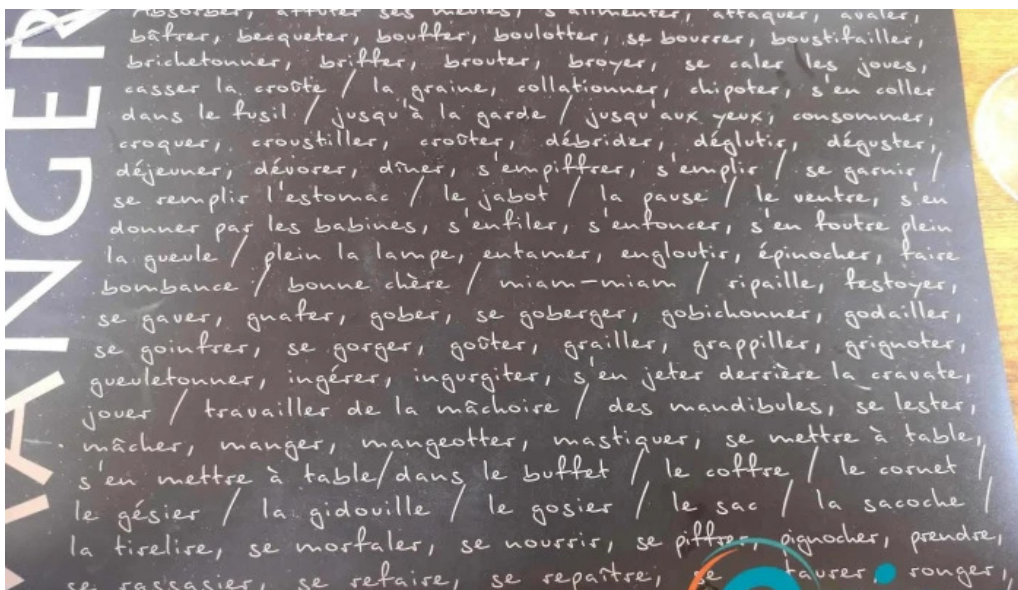 MANGER
Absorber, affûter ses meules, s'alimenter, attaquer, avaler,
bâfrer, becqueter, bouffer, boulotter, se bourrer, boustifailler,
brichetonner, briffer, brouter, broyer, se caler les joues,
casser la croûte / la graine, collationner, chipoter, s'en coller
dans le fusil / jusqu'à la garde / jusqu'aux yeux, consommer,
croquer, croustiller, croûter, débrider, déglutir, déguster,
déjeuner, dévorer, dîner, s'empiffrer, s'emplir / se garnir /
se remplir l'estomac / le jabot / la panse / le ventre, s'en
donner par les babines, s'enfiler, s'enfoncer, s'en foutre plein
la gueule / plein la lampe, entamer, engloutir, épinocher, faire
bombance / bonne chère / miam-miam / ripaille, festoyer,
se gaver, gnafer, gober, se goberger, gobichonner, godailler,
se goinfrer, se gorger, goûter, grailler, grappiller, grignoter,
gueuletonner, ingérer, ingurgiter, s'en jeter derrière la cravate,
jouer / travailler de la mâchoire / des mandibules, se lester,
mâcher, manger, mangeotter, mastiquer, se mettre à table,
s'en mettre à table/dans le buffet / le coffre / le cornet /
le gésier / la gidouille / le gosier / le sac / la sacoche /
la tirelire, se morfaler, se nourrir, se piffrer, pignocher, prendre,
se rassasier, se refaire, se repaître, se taurer, ronger,